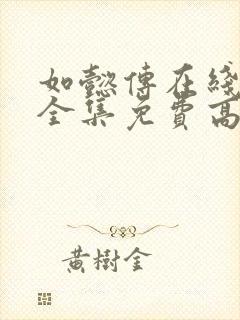 如懿傳在綫
全集免費高
黃樹金